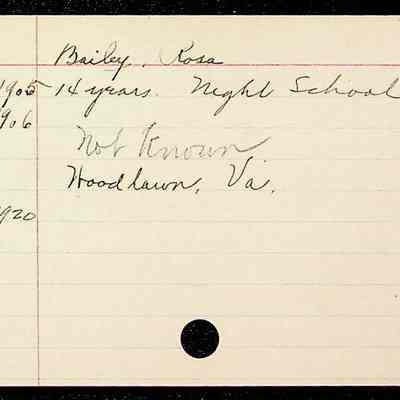 Bailey, Rosa
1905 14 years. Night School
1906
Not Known
Woodlawn, Va.
1920